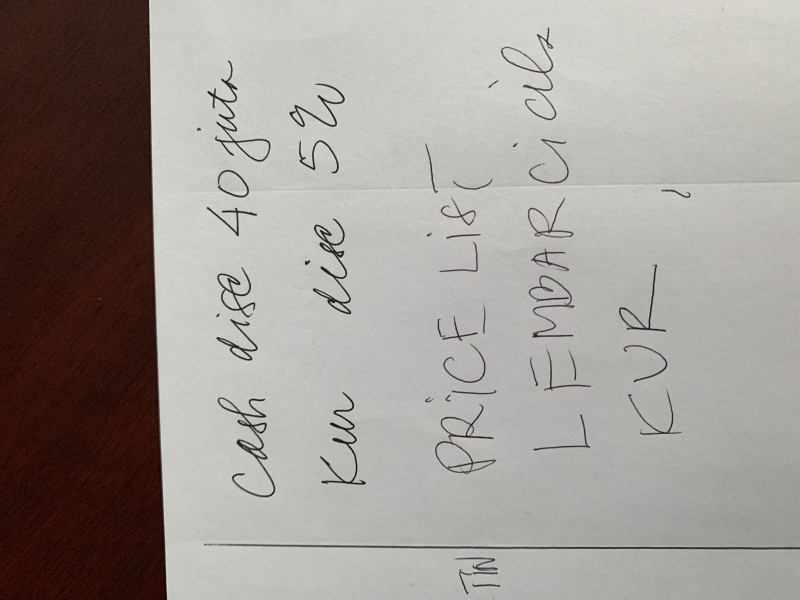 Cash disc 40 juta
Kur disc 5%
PRICE LIST
LEMBAR Cicils
KUR
TIN